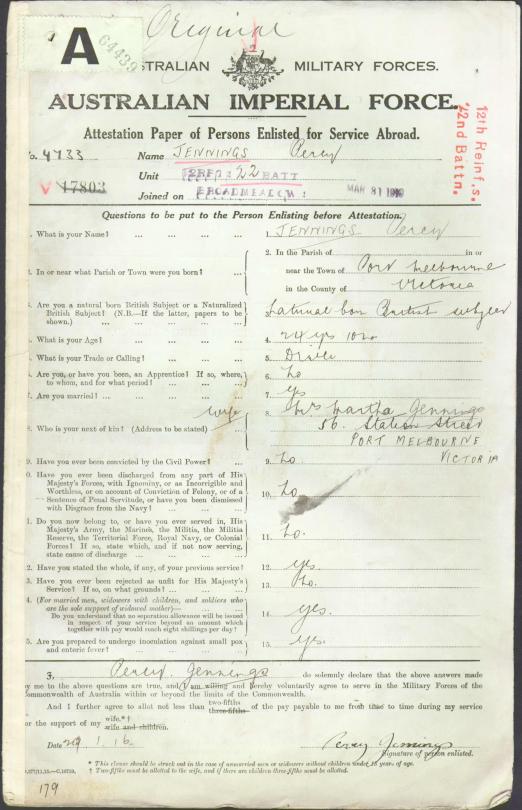 Original
A
64439
AUSTRALIAN MILITARY FORCES.
AUSTRALIAN IMPERIAL FORCE.
12th Reinf.s.
22nd Battn.
Attestation Paper of Persons Enlisted for Service Abroad.
No. 4733 Name JENNINGS Percy
Unit 22 BATT
V 17803
Joined on BROADMEADOWS MAR 31
Questions to be put to the Person Enlisting before Attestation.
. What is your Name? ... ... ... ... 1. JENNINGS Percy
. In or near what Parish or Town were you born? ...
2. In the Parish of in or
near the Town of Port Melbourne
in the County of Victoria
. Are you a natural born British Subject or a Naturalized
British Subject? (N.B.—If the latter, papers to be
shown.) ... ... ... ...
3. Natural born British subject
. What is your Age? ... ... ... ... 4. 24 yrs 10
. What is your Trade or Calling? ... ... ... 5. Driver
. Are you, or have you been, an Apprentice? If so, where,
to whom, and for what period? ... ... ... 6. No
. Are you married? ... ... ... ... 7. yes
wife
8. Who is your next of kin? (Address to be stated) ...
8. Mrs Martha Jennings
56. Station Street
PORT MELBOURNE
VICTORIA
9. Have you ever been convicted by the Civil Power? ... 9. No
0. Have you ever been discharged from any part of His
Majesty's Forces, with Ignominy, or as Incorrigible and
Worthless, or on account of Conviction of Felony, or of a
Sentence of Penal Servitude, or have you been dismissed
with Disgrace from the Navy? ... ... ...
10. No
1. Do you now belong to, or have you ever served in, His
Majesty's Army, the Marines, the Militia, the Militia
Reserve, the Territorial Force, Royal Navy, or Colonial
Forces? If so, state which, and if not now serving,
state cause of discharge ... ... ...
11. No.
2. Have you stated the whole, if any, of your previous service? 12. yes
3. Have you ever been rejected as unfit for His Majesty's
Service? If so, on what grounds? ... ... ... 13. No.
4. (For married men, widowers with children, and soldiers who
are the sole support of widowed mother)—
Do you understand that no separation allowance will be issued
in respect of your service beyond an amount which
together with pay would reach eight shillings per day?
14. yes.
5. Are you prepared to undergo inoculation against small pox
and enteric fever? ... ... ... ... 15. yes.
3, Percy Jennings do solemnly declare that the above answers made
by me to the above questions are true, and I am willing and hereby voluntarily agree to serve in the Military Forces of the
Commonwealth of Australia within or beyond the limits of the Commonwealth.
And I further agree to allot not less than two-fifths three-fifths of the pay payable to me from time to time during my service
for the support of my wife.*† wife and children.
Date 29 1. 16. Percy Jennings
Signature of person enlisted.
* This clause should be struck out in the case of unmarried men or widowers without children under 18 years of age.
† Two-fifths must be allotted to the wife, and if there are children three-fifths must be allotted.
179